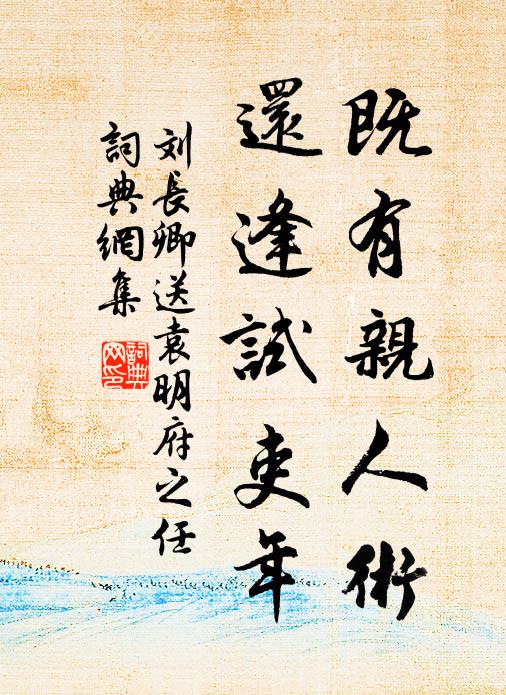 既有親人術
還逢試吏年
刘長卿送袁明府之任
詞典網集
詞典
网印